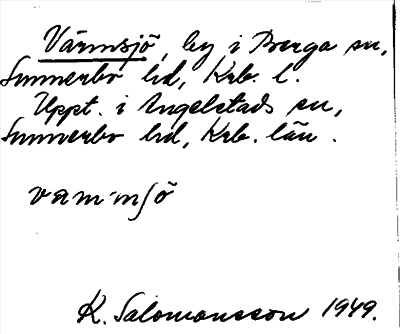 Värmsjö, by i Berga sn,
Sunnerbo hd, Krb. l.
Uppt. i Angelstads sn,
Sunnerbo hd, Krb. län.
vam·mſö
K. Salomonsson 1949.